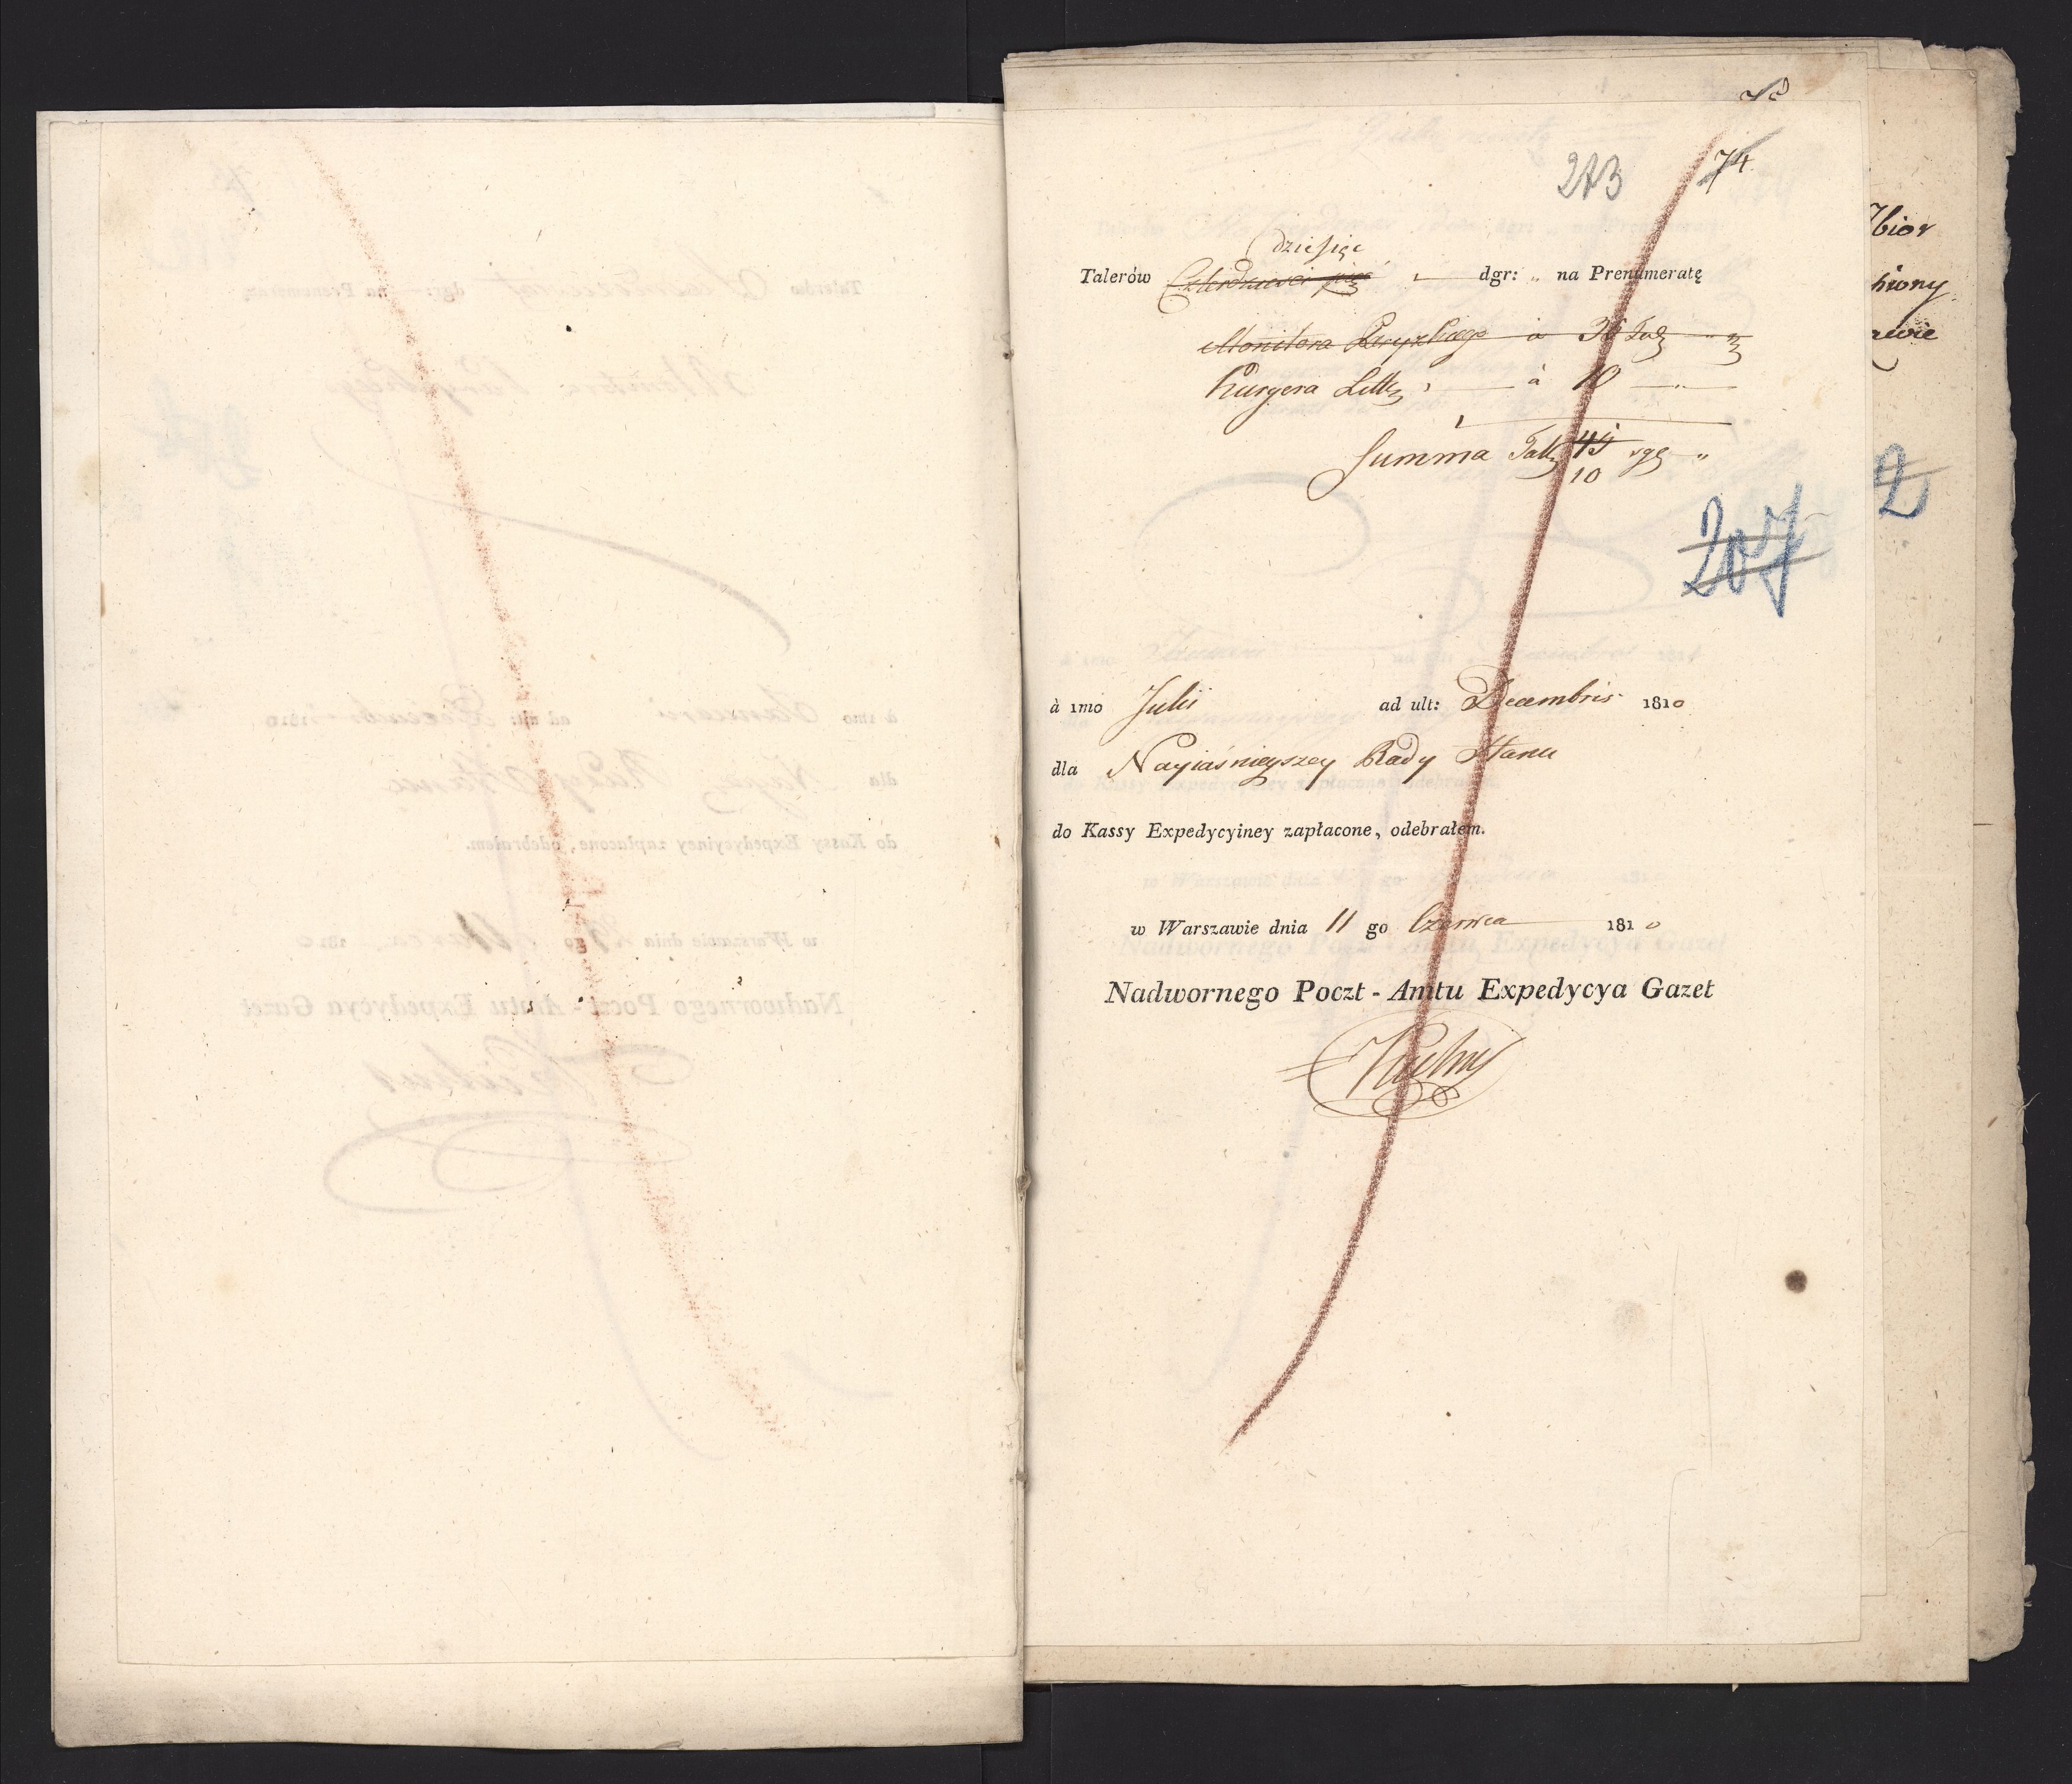 78
74
273
dziesięć
Talerów Czterdzieści pięć " dgr: " na Prenumeratę
Monitora Paryzkiego à 36 Tal "
Kuryera Litt à 10 "
Summa Tall 45 sgr "
10
207
2
à 1mo Julii ad ult: Decembris 1810
dla Nayiaśnieyszey Rady Stanu
do Kassy Expedycyiney zapłacone, odebrałem.
w Warszawie dnia 11 go Czerwca 1810
Nadwornego Poczt-Amtu Expedycya Gazet